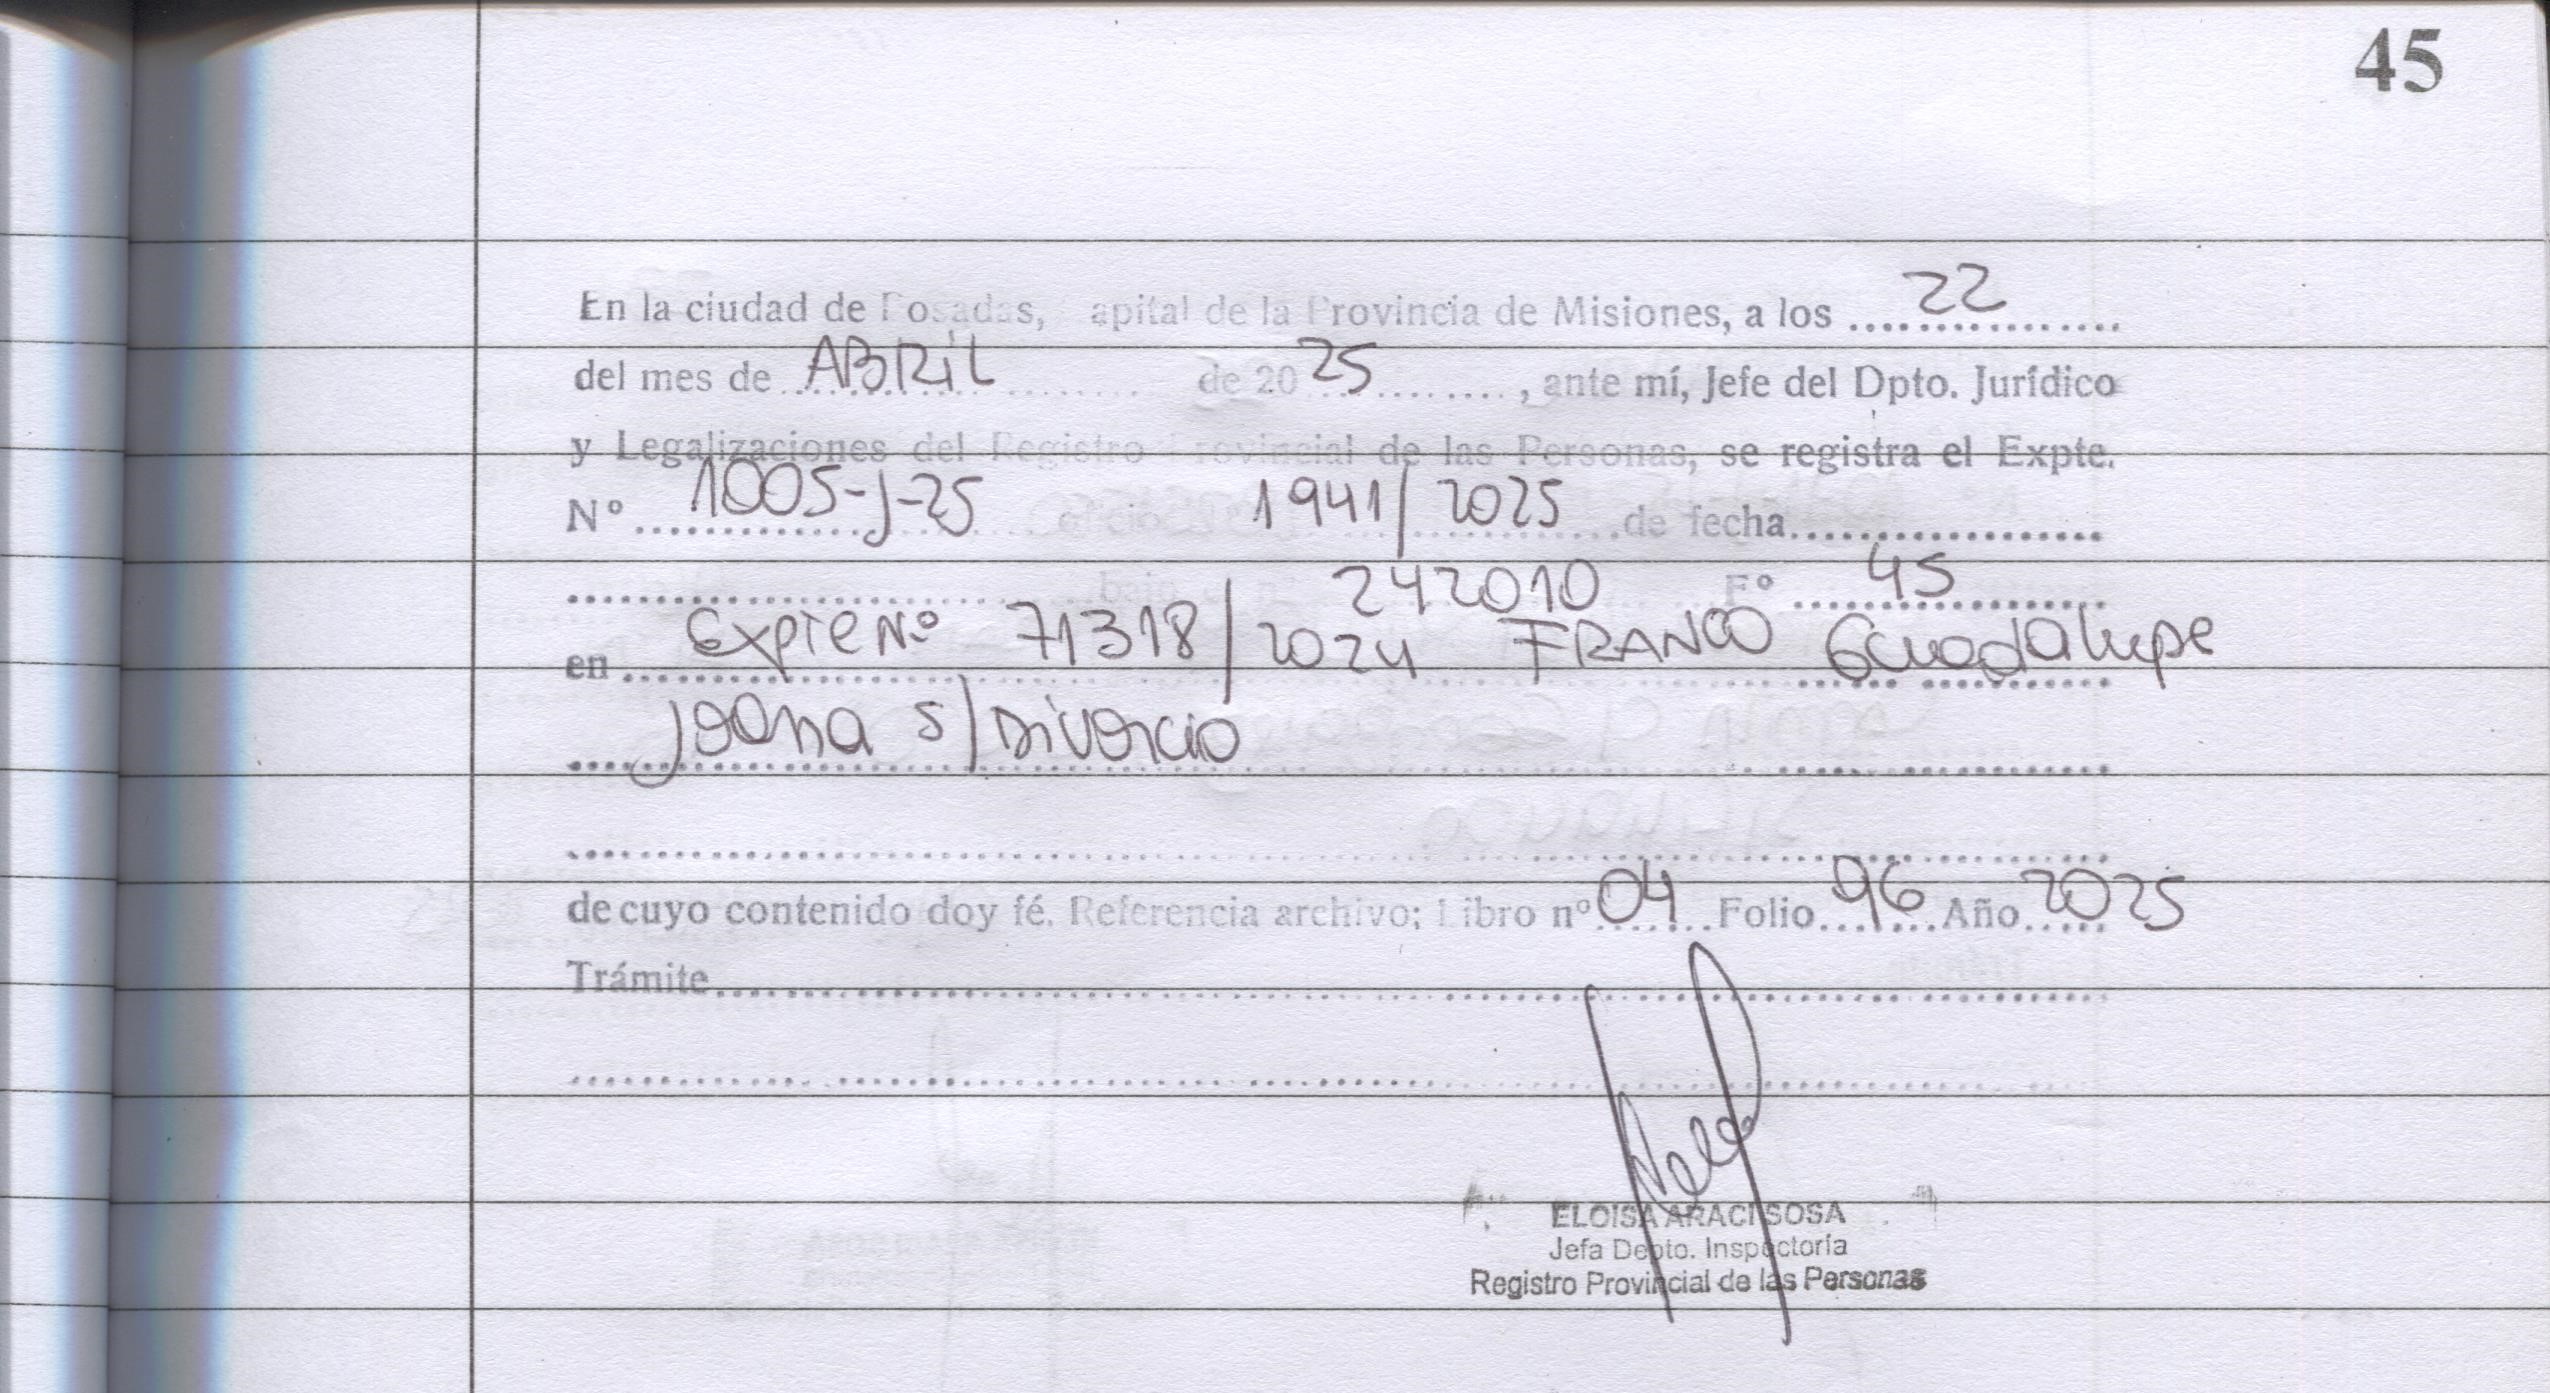 45
En la ciudad de Posadas, apital de la Provincia de Misiones, a los 22
del mes de ABRIL de 20 25, ante mí, Jefe del Dpto. Jurídico
y Legalizaciones del Registro Provincial de las Personas, se registra el Expte.
Nº 1005-J-25 oficio 1941/2025 de fecha
bajo 242010 Fº 45
en Expte Nº 71318/2024 FRANCO Guadalupe
Joana s/ Divorcio
de cuyo contenido doy fé. Referencia archivo; Libro nº 04 Folio 96 Año 2025
Trámite
ELOISA ARACI SOSA
Jefa Depto. Inspectoría
Registro Provincial de las Personas